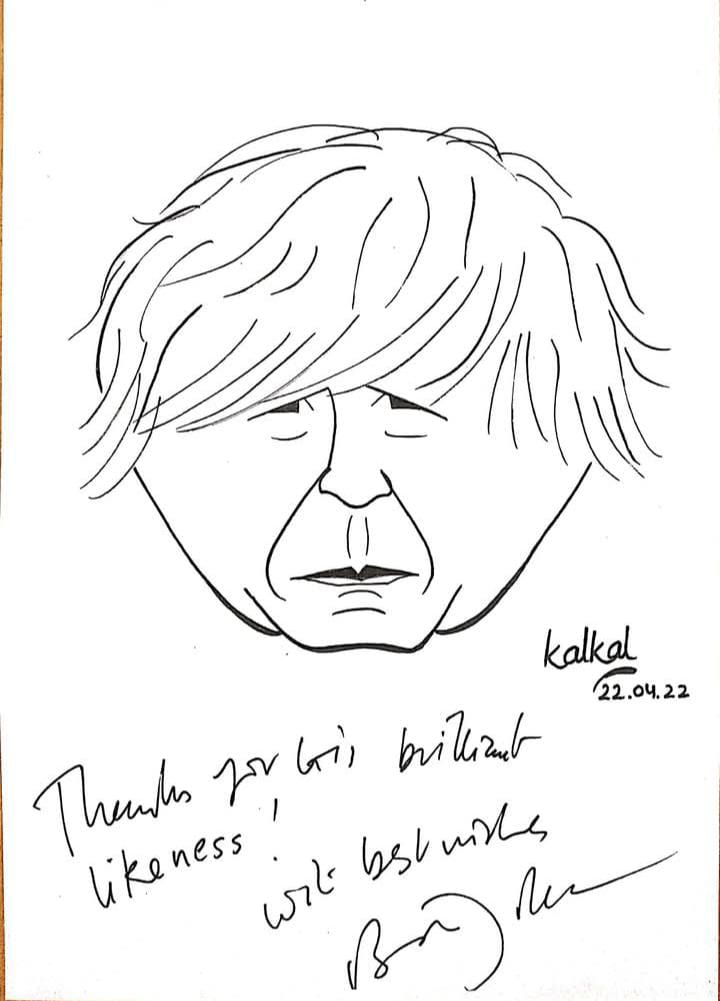 kalkal
22.04.22
Thanks for this brilliant
likeness!
with best wishes